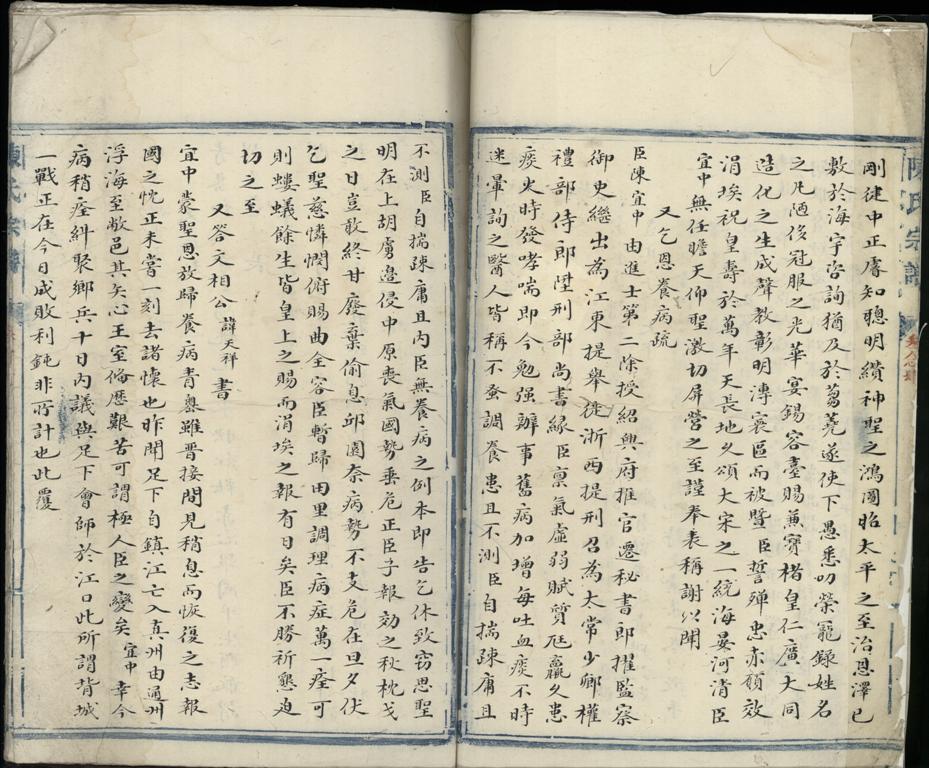 剛健中正睿知聰明纘神聖之鴻圖昭太平之至治恩澤已
敷於海宇咨詢猶及於蒭蕘遂使下愚悉叨榮寵錄姓名
之凡陋侈冠服之光華宴錫容臺賜蒹寶楮皇仁廣大同
造化之生成聲教彰明溥寰區而被暨臣誓殫忠赤願效
涓埃祝皇壽於萬年天長地久頌大宋之一統海晏河清臣
宜中無任瞻天仰聖激切屏營之至謹奉表稱謝以聞
又乞恩養病疏
臣陳宜中由進士第二除授紹興府推官遷秘書郎擢監察
御史繼出為江東提舉徙浙西提刑召為太常少卿權
禮部侍郎陞刑部尚書緣臣禀氣虛弱賦質尫羸久患
痰火時發哮喘即今勉强辦事舊病加增每吐血痰不時
迷暈詢之醫人皆稱不蚤調養患且不測臣自揣疎庸且
不測臣自揣疎庸且內臣無養病之例本即告乞休致窃思聖
明在上胡虜邉侵中原喪氣國勢垂危正臣子報効之秋枕戈
之日豈敢終甘廢棄偷息邱園奈病勢不支危在旦夕伏
乞聖慈憐憫俯賜曲全容臣暫歸田里調理病症萬一痊可
則螻蟻餘生皆皇上之賜而涓埃之報有日矣臣不勝祈懇迫
切之至
又荅文相公諱天祥書
宜中蒙聖恩放歸養病青蠅雖晋接間見稍息而恢復之志報
國之忱正未嘗一刻去諸懷也昨聞足下自鎮江亡入真州由通州
浮海至敝邑其矢心王室俻歷艱苦可謂極人臣之變矣宜中幸今
病稍痊糾聚鄉兵千日內議與足下會師於江口此所謂背城
一戰正在今日成敗利鈍非所計也此覆
陳氏宗譜
陳氏宗譜